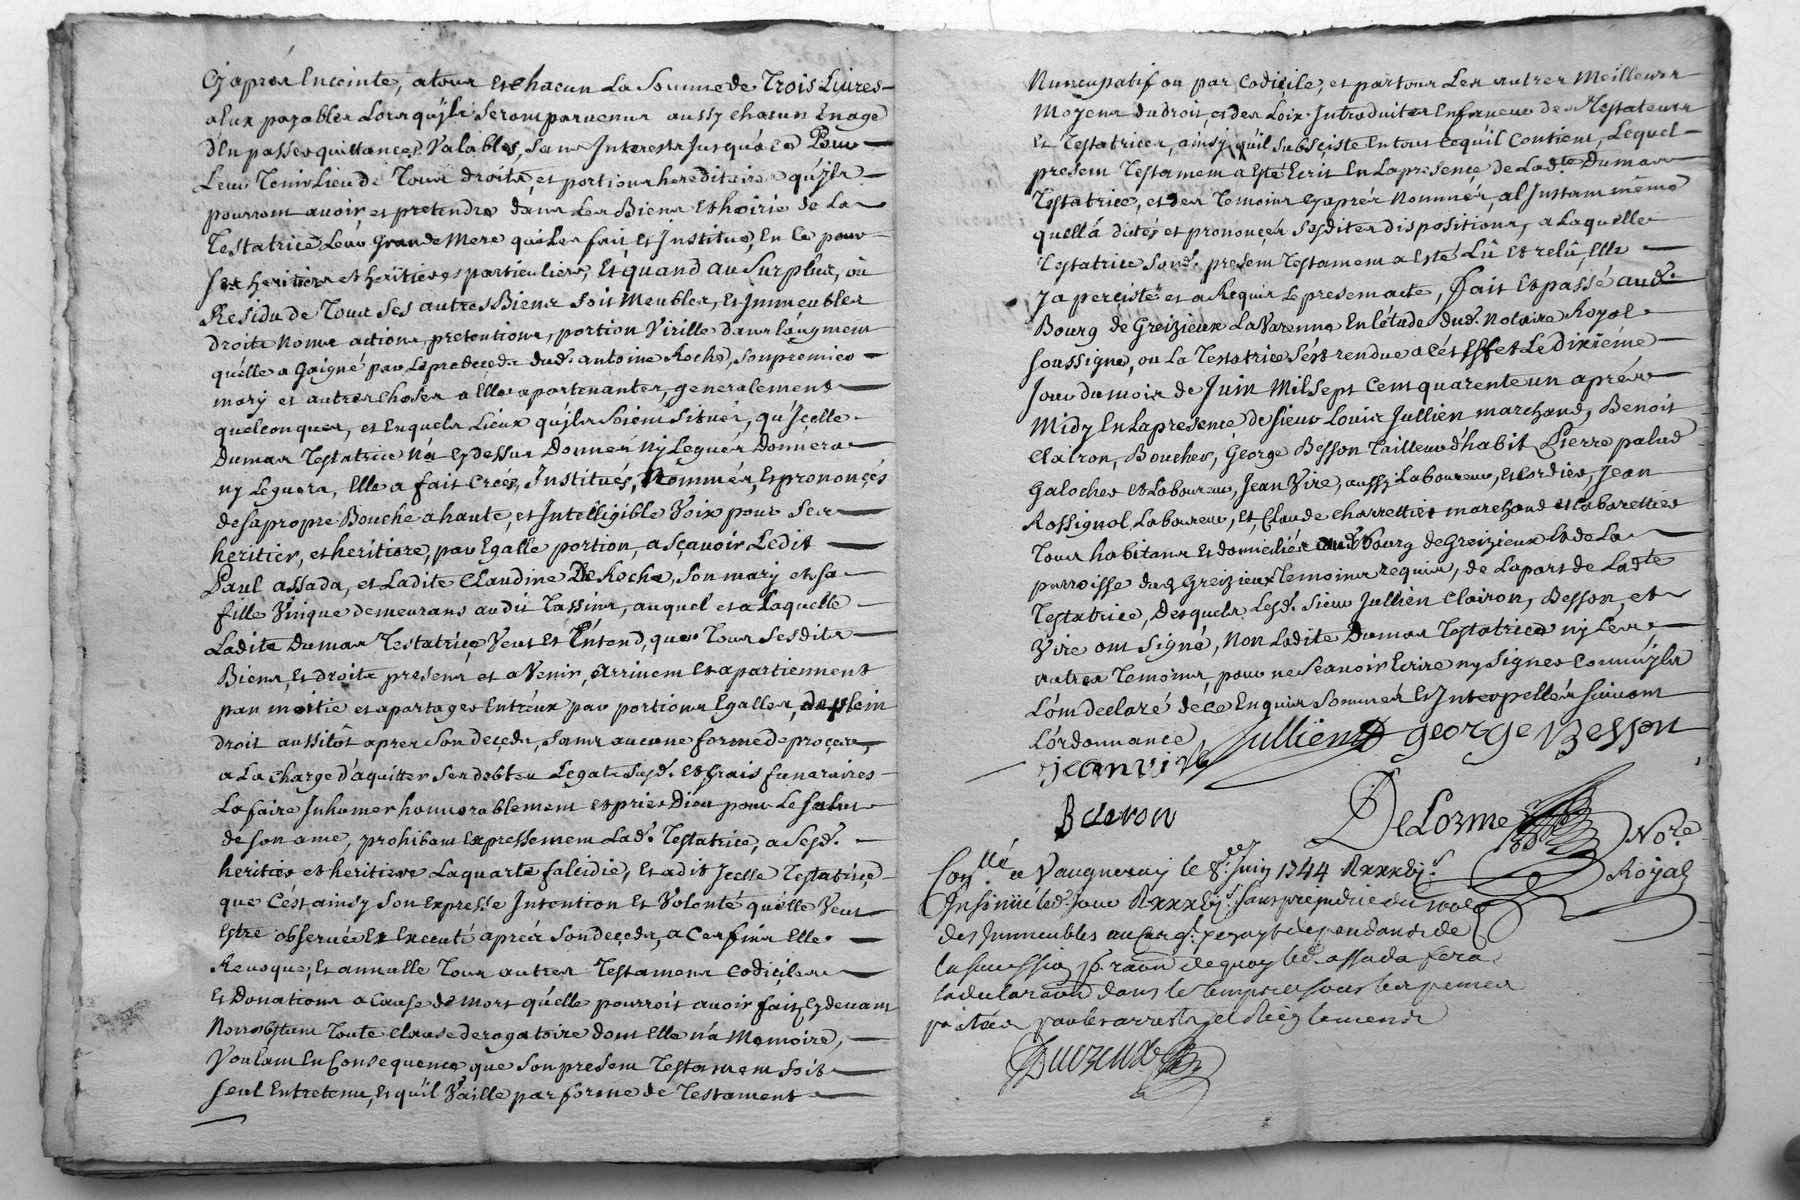 Cy aprés Enceinte, a tous Et chacun La Somme de Trois Livres
a Eux payables Lors qu'jls Seront parvenus aussy chacun En age
d'En passer quittances Valables, Sans Interests Jusqu'á Ce Pour
Leur Tenir Lieu de Tous droits, et portions hereditaires qu'jls
pourront avoir et pretendre dans Les Biens Et hoirie de La
Testatrice Leur Grande Mere qui Les fait Et Institue, En Ce pour
Ses heritiers et heritieres particuliers, Et quand au Surplus, ou
Residu de Tous Ses autres Biens Soit Meubles, Et Immeubles
droits Noms actions, pretentions, portion Virille dans l'augment
qu'elle a Gaigné par Le predecedz dud. antoine Roche, Son premier
mary et autres choses a Elle apartenantes, generalement
quelconques, et En quels Lieux qu'jls Soient Situés, qu'Jcelle
Dumas Testatrice N'á Cy dessus Donnés Ny Legués Donnera
ny Leguera, Elle a fait Créés, Institués, Nommés, Et prononcés
de sa propre Bouche a haute, et Intelligible Voix pour Ses
heritier, et heritiere, par Egalle portion, a Sçavoir Ledit
Paul assada, et Ladite Claudine De Roche, Son mary et Sa
fille Unique demeurans audit Tassins, auquel et a Laquelle
Ladite Dumas Testatrice Veut Et Entend, que Tous Sesdits
Biens, Et droits presens et a Venir, arrivent Et apartiennent
par moitié et a partager Entr'eux par portions Egalles, de plein
droit aussitôt aprés Son decedz, Sans aucune forme de procez,
a La charge d'aquitter Ses debtes Legats Susd. Et frais funeraires
La faire Inhumer honnorablement et prier Dieu pour Le Salut
de Son ame, prohibant Expressement Lad. Testatrice, a Sesd.
heritier et heritiere La quarte falcidie, Et a dit Jcelle Testatrice
que C'est ainsy Son Expresse Intention Et Volonté qu'elle Veut
Estre observée Et Executé aprés Son decedz, a Ces fins Elle
Revoque, Et annulle Tous autres Testamens Codiciles
Et Donations a Cause de Mort qu'elle pourroit avoir fait, Cy devant
Nonobstant Toute Clause derogatoire dont Elle n'a Memoire,
Voulant En Consequence que Son present Testament Soit
Seul Entretenu, Et qu'il Vaille par forme de Testament
Nuncupatif ou par Codicile, et par tous Les autres Meilleurs
Moyens du droit, et des Loix Introduites En faveur des Testateurs
Et Testatrices, ainsy qu'il Subsciste En tout Ce qu'il Contient, Lequel
present Testament a Esté Ecrit En La presence de Lad.te Dumas
Testatrice, et des Temoins Cy aprés Nommés, a l'Instant même
qu'ell'á dictés et prononcés Sesdites dispositions, a Laquelle
Testatrice Sond. present Testament a Esté Lû Et relû, Elle
y a percisté et a Requis Le present acte, fait Et passé aud.
Bourg de Greizieux La Varenne En L'etude dud. Notaire Royal
Soussigné, ou La Testatrice S'est rendue a Cet Effet Le Dixiéme
Jour du mois de Juin Mil Sept Cent quarente un aprés
Midy En La presence de Sieur Louis Jullien marchand, Benoit
Clairon, Boucher, George Besson Tailleur d'habit Pierre palud
Galocher et Laboureur, Jean Vire, aussy Laboureur, Et Cordier, Jean
Rossignol Laboureur, Et Claude charrettier marchand et Cabarettier
Tous habitans Et domiciliés aud. Bourg de Greizieux Et de La
parroisse dud. Greizieux temoins requis, de La part de Lad.te
Testatrice, Desquels Lesd. Sieur Jullien Clairon, Besson, et
Vire ont Signé, Non Ladite Dumas Testatrice ny Les
autres Temoins, pour ne Scavoir Ecrire ny Signer Comm'jls
L'ont declaré de ce Enquis Sommés Et Interpellés Suivant
L'ordonnance
Jullien George Besson
jean vire
B cleron
DeLorme Nore.
Royal
Con.llé a Vaugneray le 8. Juin 1744 R xxxbj s.
Insinüé led. Jour R xxxbj s. Sans prejudice du
des Jmmeubles dependants de
la Succession de quoy led. assada fera
la declaration dans le temps Sous les peines
portées par les arrests et Reglemens
Duezeux